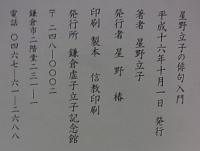 星野立子の俳句入門
平成十六年十月一日 発行
著者 星野立子
発行者 星野 椿
印刷 製本 信教印刷
発行所 鎌倉虚子立子記念館
〒二四八-〇〇〇二
鎌倉市二階堂二三一-一
電話 〇四六七-六一-二六八八